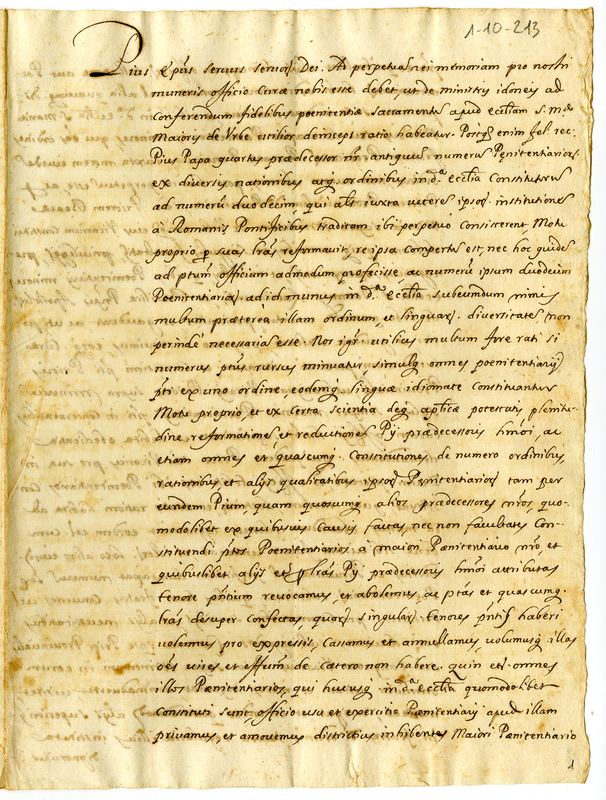 1-10-213
Pius Ep̃us seruus seruor. Dei. Ad perpetuam rei memoriam pro nostri
muneris officio Curæ nobis esse debet, ut de ministris idoneis ad
Conferendum fidelibus poenitentiæ Sacramentum apud eccl̃iam S. Mæ
Maioris de Vrbe utilior deinceps ratio habeatur. Postq̃ enim fel. rec.
Pius Papa quartus prædecessor nr̃ antiquum numerum Pęnitentiarior.
ex diuersis nationibus atq. ordinibus in d.a eccl̃ia Constitutorum
ad numerũ duodecim, qui als̃ iuxta ueteres ipsor. institutiones
à Romanis Pontificibus traditam ibi perpetuo Consisterent, Motu
proprio p suas lr̃as reformauit, re ipsa Compertũ est, nec hoc quidem
ad p̃tum officium admodum profecisse ac numerũ ipsum duodecim
Poenitentiarior. ad id munus in d.a Eccl̃ia subeundum nimis
multum præterea illam ordinum, et linguar. diuersitatem non
perinde necessariã esse. Nos igr̃ utilius multum fore rati si
numerus p̃tus rursus minuatur, simulq. omnes poenitentiarij
p̃ti ex uno ordine, eodemq. linguæ idiomate Constituantur
Motu proprio, et ex Certa scientia deq. aplicæ potestatis plenitu-
dine reformationem et reductionem Pij prædecessoris hmõi, ac
etiam omnes et quascumq. Constitutiones de numero ordinibus,
rationibus, et alijs qualitatibus ipsor. Pænitentiarior. tam per
eundem Pium, quam quoscumq. alios prædecessores nr̃os quo-
modolibet ex quibusuis Causis factas, nec non facultates Con-
stituendi p̃tos Poenitentiarios, à maiori Pænitentiario nr̃o, et
quibuslibet alijs et p lr̃as Pij prædecessoris hmõi attributas
tenore pñtium reuocamus, et abolemus, ac p̃tas et quascumq.
lr̃as desuper Confectas, quar. singular. tenores pñtis haberi
uolumus pro expressis, Cassamus et annullamus, volumusq. illas
oẽs uires et effum̃ de Cætero non habere. quin etĩ omnes
illos Pænitentiarios, qui hucusq. in d.a Eccl̃ia quomodolibet
Constituti sunt, officio usu et exercitio Pænitentiarij apud illam
priuamus, et amouemus districtius inhibentes Maiori Pænitentiario
1